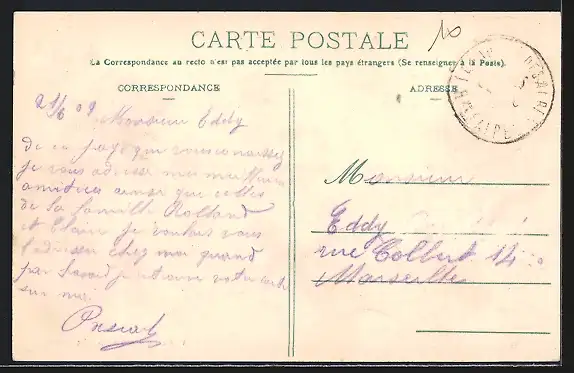 CARTE POSTALE
10
La Correspondance au recto n'est pas acceptée par tous les pays étrangers (Se renseigner à la Poste).
CORRESPONDANCE
ADRESSE
21/6 09
Monsieur Eddy
de ce pays que vous connaissez
je vous adresse mes meilleures
amitiés ainsi que celles
de la famille Rolland
et je voulais vous
chez moi quand
par votre carte
sur moi
Pascal
Monsieur
Eddy
rue Colbert 14
Marseille